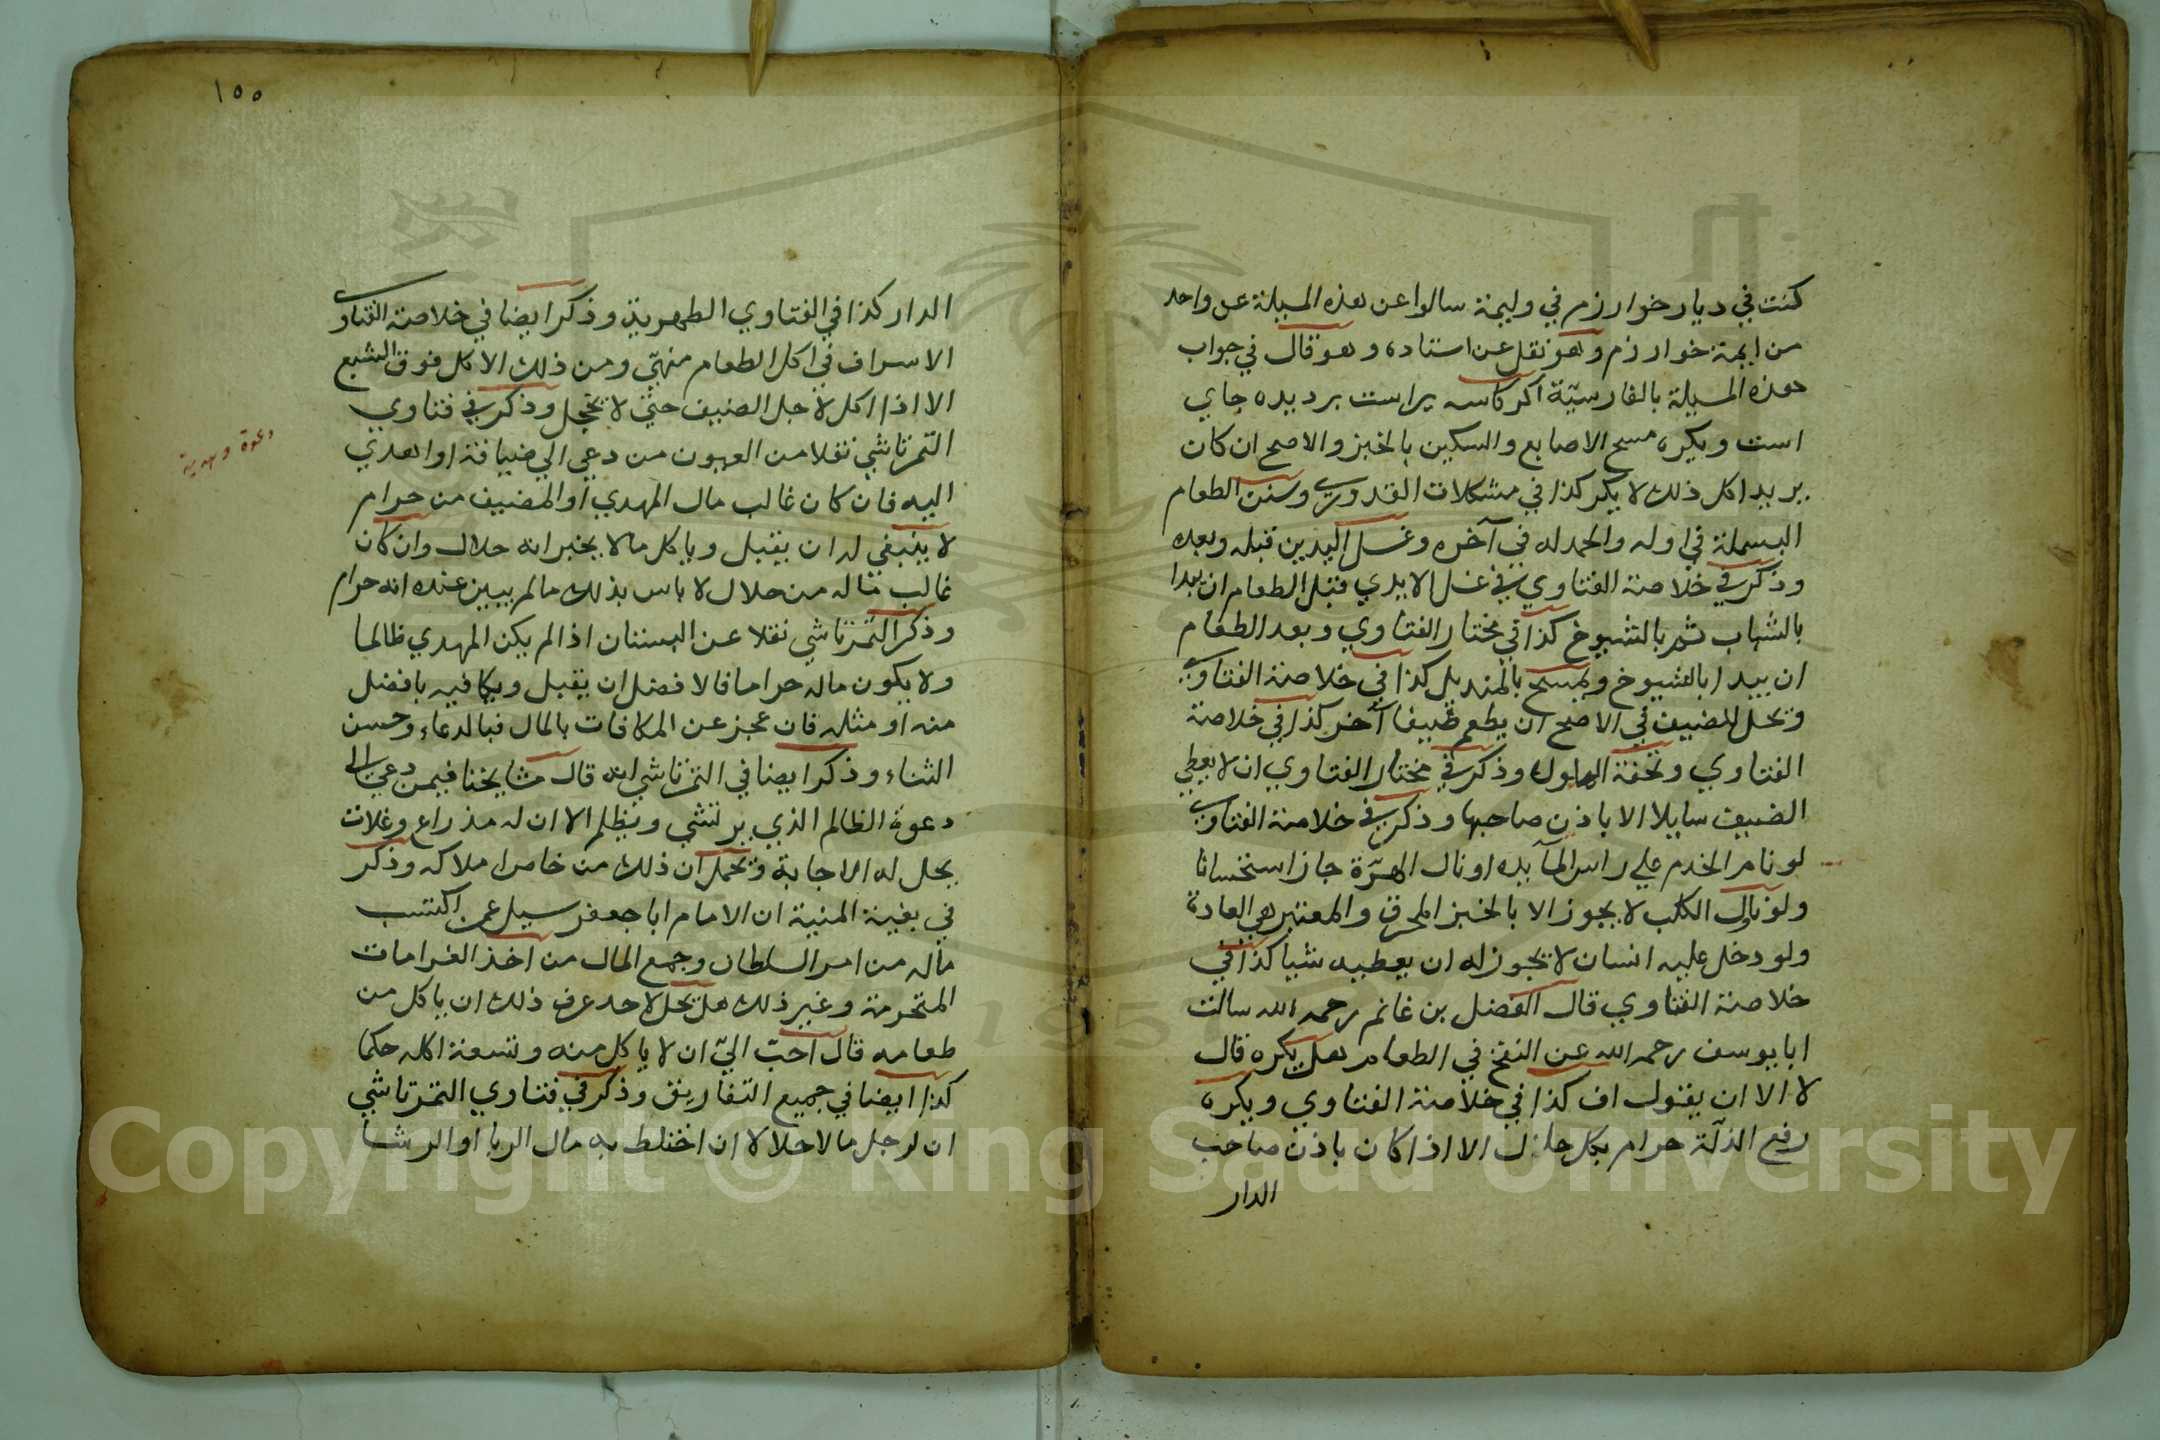 كنت في ديار خوارزم في وليمة سالوا عن هذه المسيلة عن واحد
من ايمة خوارزم وهو نقل عن استاده وهو قال في جواب
هذه المسيلة بالفارسيّة اكر كاسه براست برديده جاي
است ويكره مسح الاصابع والسكين بالخبز والاصح ان كان
يريد اكل ذلك لا يكر كذا في مشكلات القدوري وسنن الطعام
البسملة في اوله والحمدله في آخره وغسل اليدين قبله وبعده
وذكر في خلاصة الفتاوي في غسل الايدي قبل الطعام ان يبدا
بالشباب ثم بالشيوخ كذا في مختار الفتاوي وبعد الطعام
ان يبدا بالشيوخ ويمسح بالمنديل كذا في خلاصة الفتاوي
ويحل للضيف في الاصح ان يطعم ضيفا آخر كذا في خلاصة
الفتاوي وتحفة الملوك وذكر في مختار الفتاوي ان لا يعطي
الضيف سايلا الا باذن صاحبها وذكر في خلاصة الفتاوي
لو ناول الخدم علي راس المآيده او ناول الهرّة جاز استحسانا
ولو ناول الكلب لا يجوز الا بالخبز المحرق والمعتبر هي العادة
ولو دخل عليه انسان لا يجوز له ان يعطيه شيا كذا في
خلاصة الفتاوي قال الفضل بن غانم رحمه الله سالت
ابا يوسف رحمه الله عن النفخ في الطعام هل يكره قال
لا الا ان يقول اف كذا في خلاصة الفتاوي ويكره
رفع الذلّة حرام بكل حال الا اذا كان باذن صاحب
الدار
١٥٥
الدار كذا في الفتاوي الظهرية وذكر ايضا في خلاصة الفتاوي
الاسراف في اكل الطعام منهيّ ومن ذلك الاكل فوق الشبع
الا اذا اكل لاجل الضيف حتي لا يخجل وذكر في فتاوي
التمرتاشي نقلا من العيون من دعي الي ضيافة او اهدي
اليه فان كان غالب مال المهدي او المضيف من حرام
لا ينبغي له ان يقبل وياكل مالا يخبر انه حلال وان كان
غالب ماله من حلال لا باس بذلك مالم يبين عنده انه حرام
وذكر التمرتاشي نقلا عن البستان اذا لم يكن المهدي ظالما
ولا يكون ماله حراما فالافضل ان يقبل ويكافيه بافضل
منه او مثله فان عجز عن المكافات بالمال فبالدعاء وحسن
الثناء وذكر ايضا في التمرتاشي انه قال مشايخنا فيمن دعي الي
دعوة الظالم الذي يرتشي ويظلم الا ان له مذراع وغلات
يحل له الاجابة ويحمل ان ذلك من خاص املاكه وذكر
في بغية المنية ان الامام ابا جعفر سيل عمن اكتسب
ماله من امر السلطان وجمع المال من اخذ الغرامات
المتحرمة وغير ذلك هل يحل لاحد عرف ذلك ان ياكل من
طعامه قال احبّ اليّ ان لا ياكل منه وتسعة اكله حكما
كذا ايضا في جميع التفاريق وذكر في فتاوي التمرتاشي
ان لرجل مالا حلالا ان اختلط به مال الربا او الرشا
دعوة وهدية
Copyright © King Saud University
1957